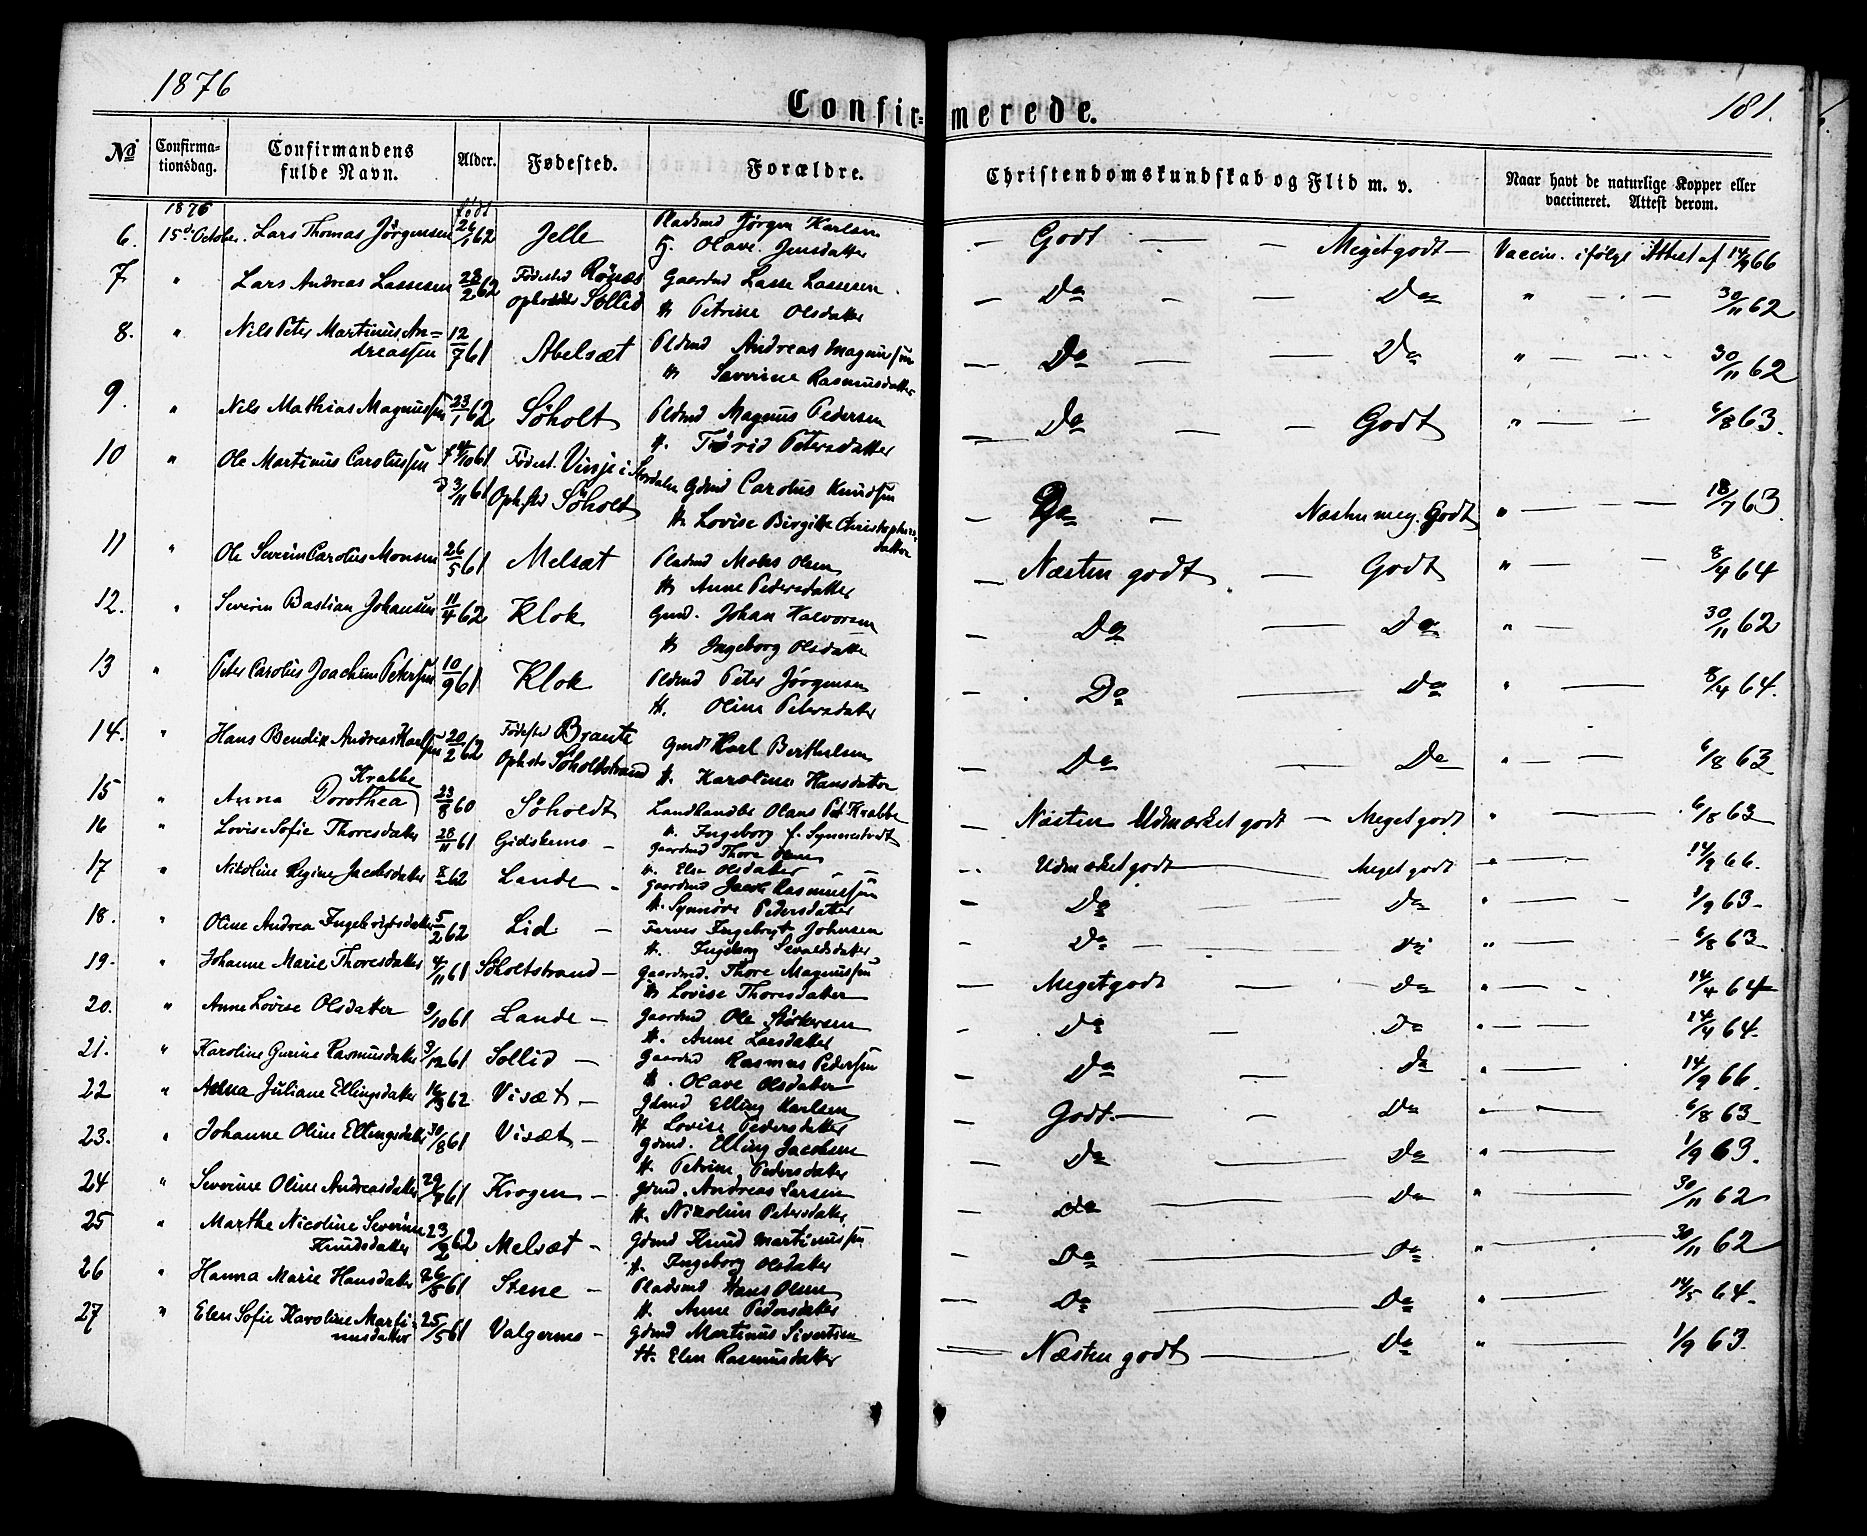 1876
Confirmerede.
181.
No
Confirmationsdag.
Confirmandens fulde Navn.
Alder.
Fødested.
Forældre.
Christendomskundskab og Flid m. v.
Naar havt de naturlige Kopper eller vaccineret. Attest derom.
1876 født
6. 15d October. Lars Thomas Jørgensen 26/1 62 Jelle Pladsmd Jørgen Karlsen — Godt — — Megetgodt — Vaccin. ifølge Attest af 14/9 66
Olave Jensdatter
7 " Lars Andreas Lassesen 28/2 62 Fødested Rønæs Gaardmd Lasse Lassesen — Do — — Do " — — 30/11 62
Sollid H. Petrine Olsdatter
8. " Nils Peter Martinus An= 12/7 61 Abelsæt Pldsmd Andreas Magnussen — Do — — Do " — — 30/11 62
dreassen H. Severine Rasmusdatter
9. " Nils Mathias Magnussen 23/1 62 Søholt Pldsmd Magnus Pedersen — Do — — Godt " — — 6/8 63.
H. Petersdatter
10 " Ole Martinus Carolussen f 14/10 61 Fødest. Vinje i Stordalen Gdmd Carolus Knudsen — Do — Næsten meg. Godt " — — 18/7 63
d 3/11 61 Opfst Søholt H. Lovise Birgitte Christophers-
datter
11 " Ole Severin Carolus Monsen 26/5 61 Melsæt Pladsmd Mons Olsen — Næsten godt — Godt " — — 8/4 64
H. Anne Pedersdatter
12. " Severin Bastian Johansen 11/4 62 Klok Gmd. Johan Halvorsen — Do — Do " — 30/11 62
H. Ingeborg Olsdatter
13 " Peter Carolus Joachim Petersen 10/9 61 Klok Pldsmd Peter Jørgensen — Do — Do " — — 8/4 64.
H. Oline Petersdatter
14. " Hans Bendix Andreas Karlsen 20/2 62 Fødested Braute Gmd Karl Berthelsen — Do — Do " — — 6/8 63
Opfst Søholtstrand H. Karoline Hansdatter
Krabbe
15 " Anna Dorothea 23/8 60 Søholdt Landhandler Olaus Pet Krabbe — Næsten Udmærket godt — Megetgodt " — 6/8 63
H. Ingeborg f. Synnestvedt
16 " Lovise Sofie Thoresdatter 28/11 61 Gidskemo — Gaardmd Thore — Udmærketgodt — Megetgodt " — 14/9 66.
H. Else Olsdatter
17 " Nikoline Regine Jacobsdatter 62 Lande — Gaardmd Jacob Rasmussen — Do — Do " — 1/9 63 —
H. Synnøve Pedersdatter
18. " Oline Andrea Ingebrigtsdatter 5/2 62 Lid — Farver Ingebrigt Johnsen — Do — Do " — 6/8 63
H. Ingeborg Sevaldsdatter
19. " Johanne Marie Thoresdatter 4/11 61 Søholtstrand — Gaardmd. Thore Magnussen — Megetgodt — Do " — 14/4 64
H. Lovise Thoresdatter
20. " Anne Lovise Olsdatter 9/10 61 Lande — Gaardmd Ole Størkersen — Do — Do " — 14/4 64.
H. Anne Larsdatter
21. " Karoline Gurine Rasmusdatter 3/12 61 Sollid — Gaardmd Rasmus Pedersen — Do — Do " — 14/9 66.
H. Olave Olsdatter
22 " Anna Juliane Ellingsdatter 16/3 62 Visæt — Gdmd Elling Karlsen — Godt — — Do " — 6/8 63
H. Lovise Pedersdatter
23. " Johanne Oline Ellingsdatter 30/8 61 Visæt — Gdmd. Elling Jacobsen — Do — Do " — 1/9 63.
H. Petrine Pedersdatter
24 " Severine Oline Andreasdatter 61 Krogen — Gdmd. Andreas Larsen — do — Do " — 30/11 62
H. Nikoline Petersdatter
25 " Marthe Nicoline Severine 23/2 62 Melsæt — Gdmd Knud Martinussen — Do — Do " — 30/11 62
Knudsdatter H. Ingeborg Olsdatter
26 " Hanna Marie Hansdatter 26/5 61 Stene — Pladsmd Hans Olsen — Do — Do " — 14/5 64.
H. Anne Pedersdatter
27 " Elen Sofie Karoline Marti- 25/5 61 Valgermo — Gdmd Martinus Sivertsen — Næsten godt — Do " — 1/9 63.
nusdatter H. Elen Rasmusdatter